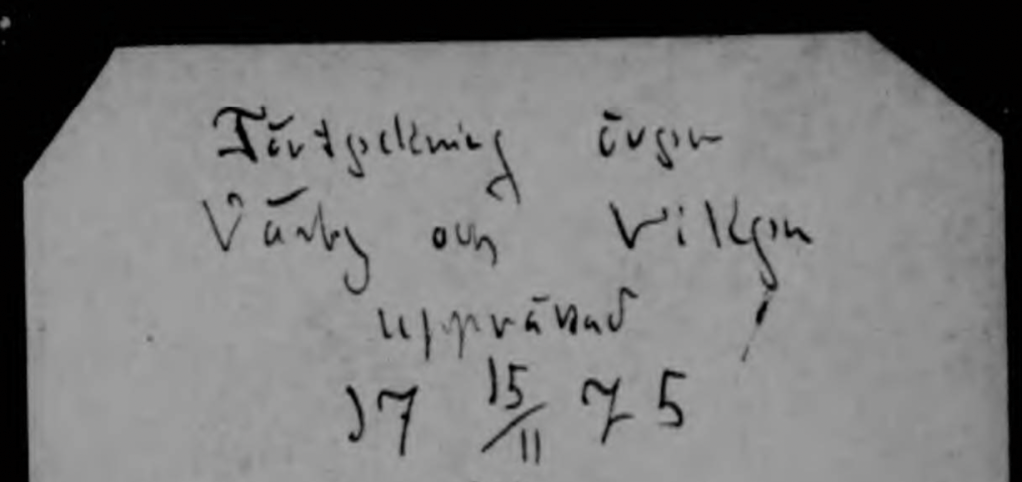 Förteckning över
Vårby och Viken
upprättad
17 15/11 75